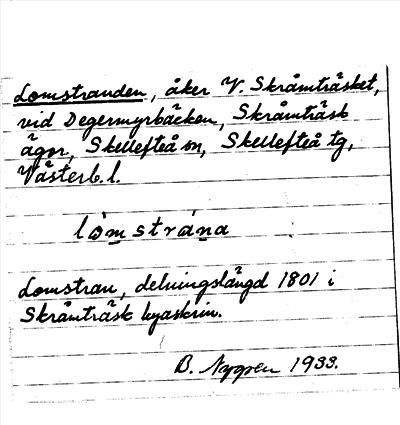 Lomstranden, åker V. Skråmträsket,
vid Degermyrbäcken, Skråmträsk
ägor, Skellefteå sn, Skellefteå tg,
Västerb. l.
lòmstrána
Lomstran, delningslängd 1801 i
Skråmträsk byaskrin.
B. Nygren 1933.